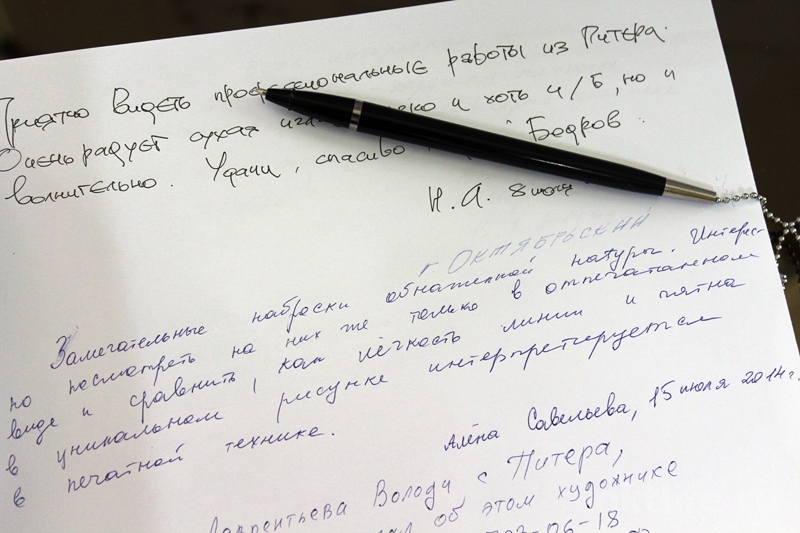 Приятно видеть профессиональные работы из Питера.
Очень радует сухая и хоть ч/б, но и
волнительно. Удачи, спасибо Бодров.
Н.А. 8
г. ОКТЯБРЬСКИЙ
Замечательные наброски обнаженной натуры. Интерес-
но посмотреть на них же только в отпечатанном
виде и сравнить, как лёгкость линии и пятна
в уникальном рисунке интерпретируется
в печатной технике.
Алёна Савельева, 15 июля 2014 г.
Лаврентьева Володи, с Питера,
об этом художнике
-06-18